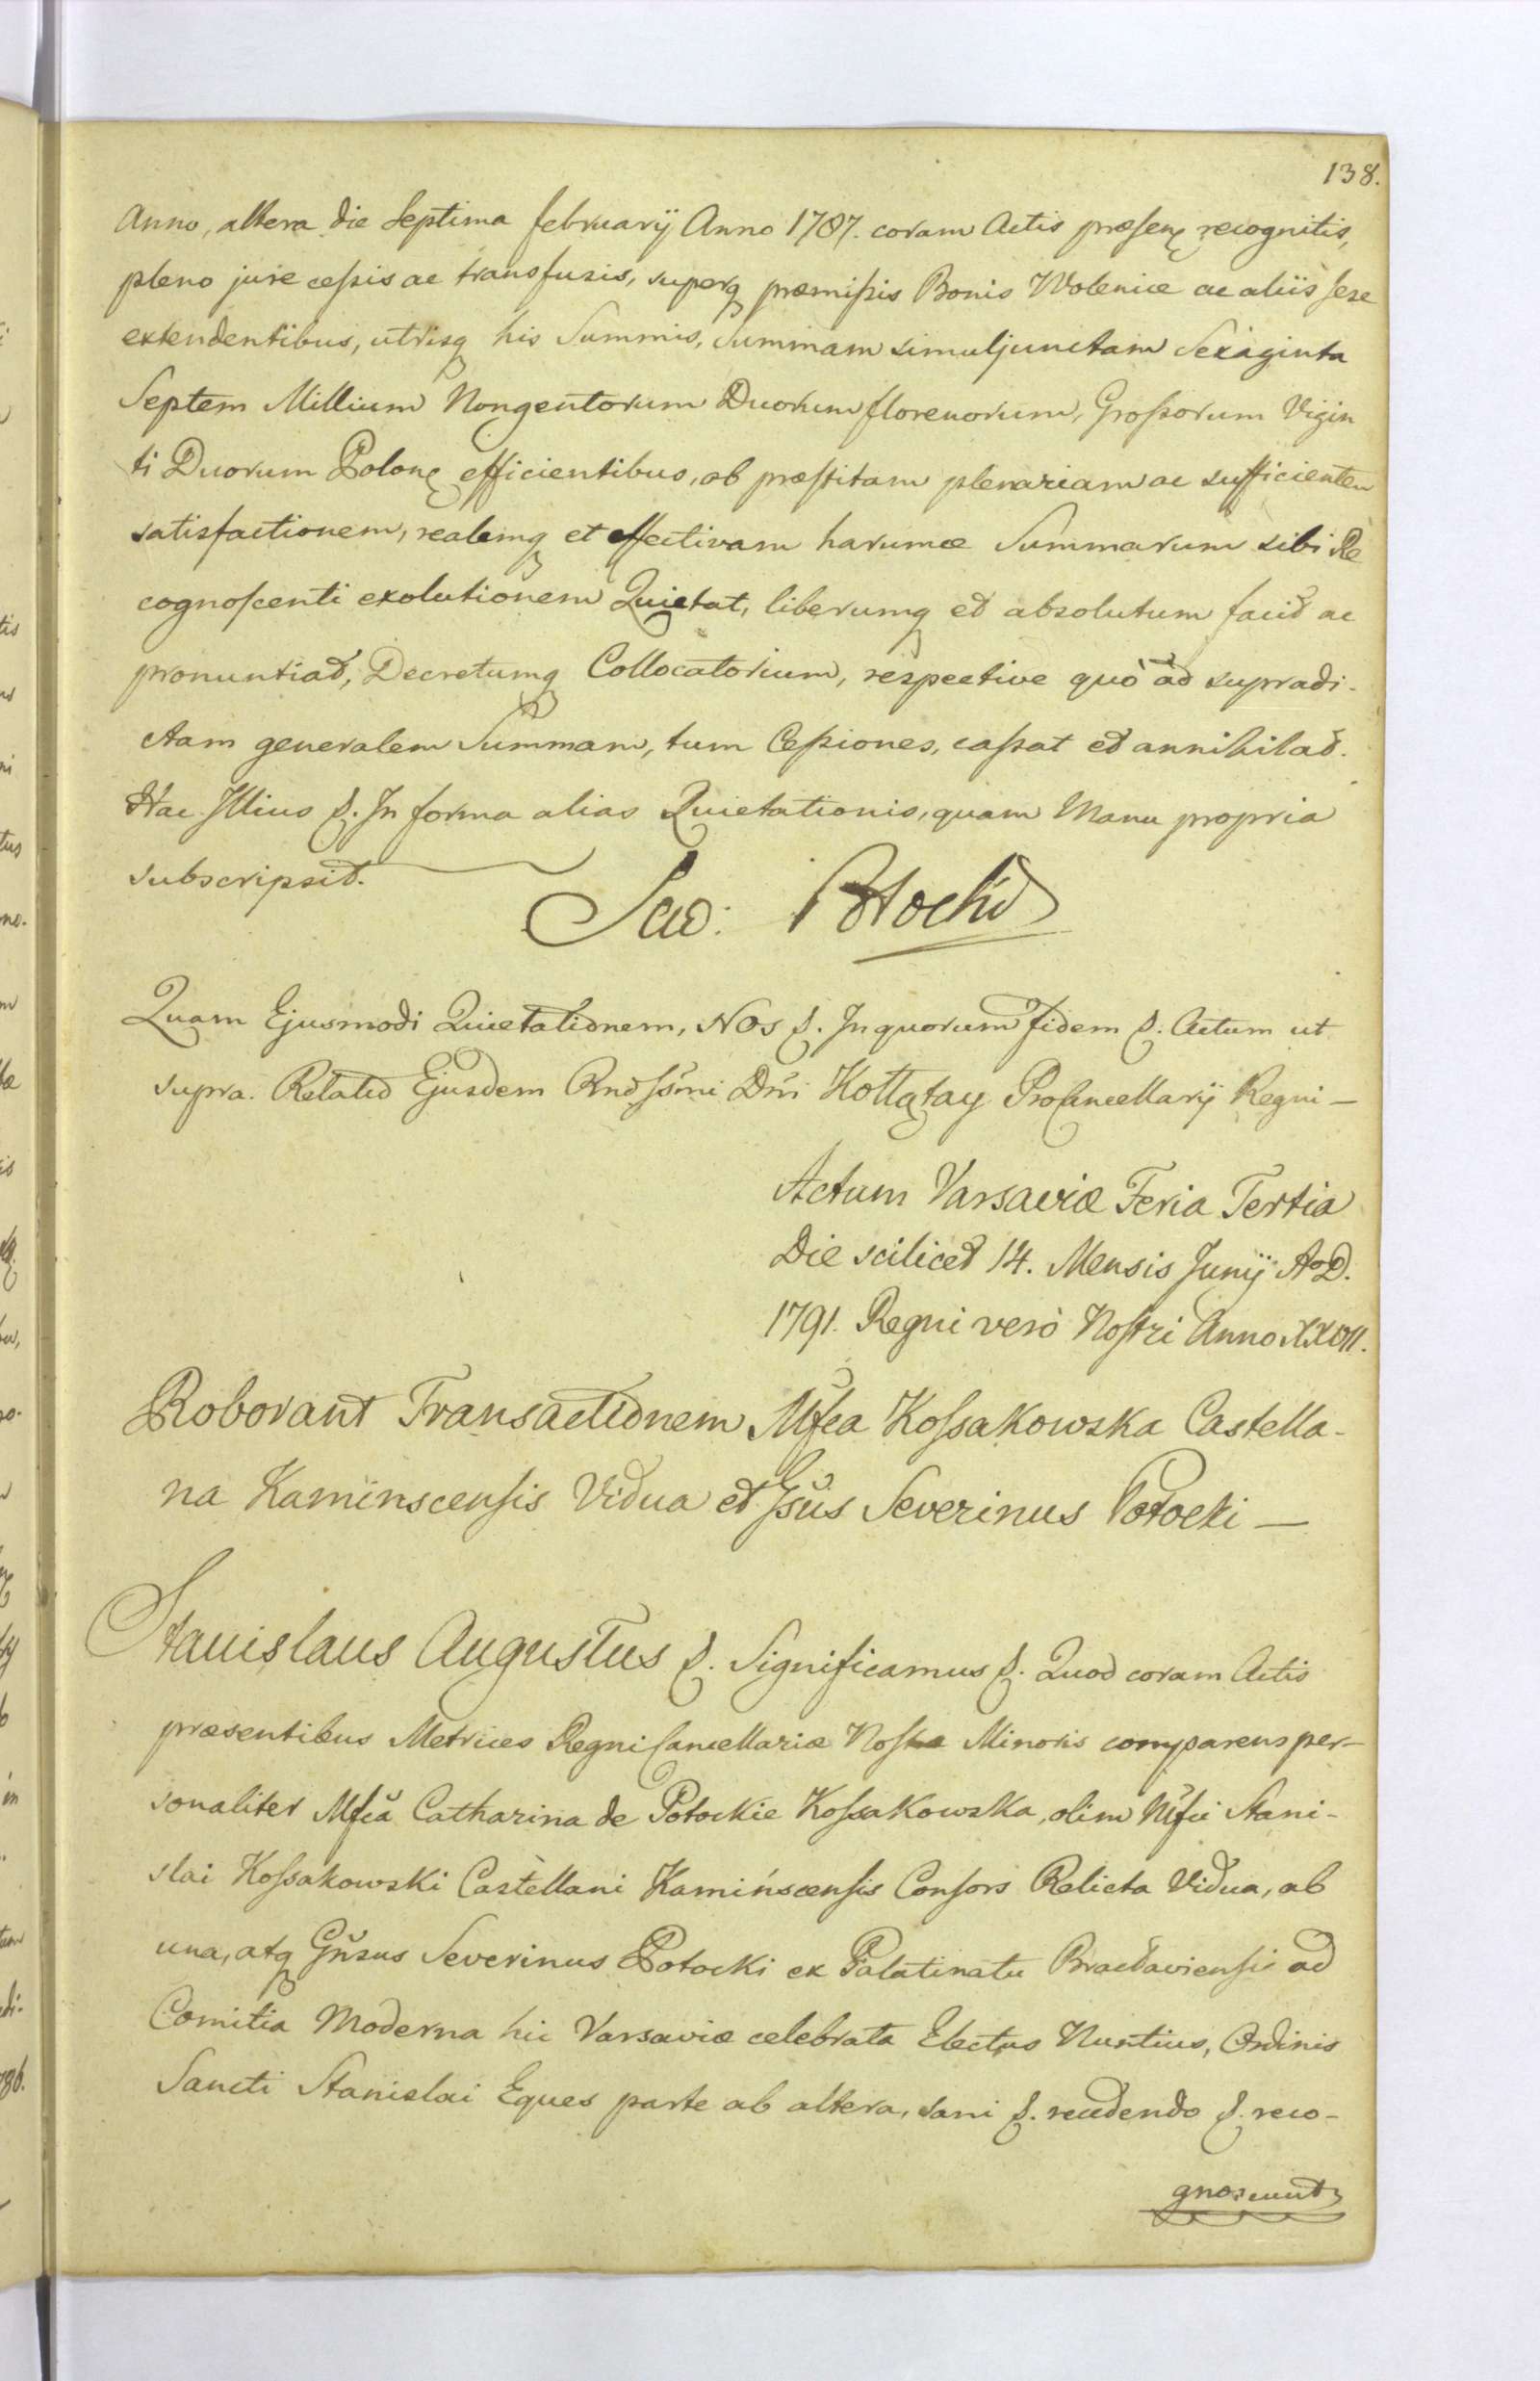 138.
Anno, altera die Septima februarÿ Anno 1787. coram Actis præsenꝫ recognitis,
pleno jure ceſsis ac transfusis, superqꝫ præmiſsis Bonis Wolenice ac aliis ſese
extendentibus, utrisqꝫ his Summis, Summam simuljunctam Sexaginta
Septem Millium Nongentorum Duorum florenorum, Groſsorum Vigin
ti Duorum Polonꝫ efficientibus, ob præſtitam plenariam ac sufficientem
satisfactionem, realemqꝫ et effectivam harumce Summarum sibi Re
cognoſcenti exolutionem Quietat, liberumqꝫ et absolutum facit ac
pronuntiat, Decretumqꝫ Collocatorium, respective quò ad supradi-
ctam generalem Summam, tum Ceſsiones, caſsat et annihilat.
Hac Illius ꝭ. In forma alias Quietationis, quam Manu propria
subscripsit.
Sew: Potocki
Quam Ejusmodi Quietationem, Nos ꝭ. In quorum fidem ꝭ. Actum ut
supra. Relatio Ejusdem Rndſsmi Dni Kołłątay ProCancellarÿ Regni —
Actum Varsaviæ Feria Tertia
Die scilicet 14. Mensis Junÿ AoD.
1791. Regni verò Noſtri Anno XXVII.
Roborant Transactionem Mfca Koſsakowska Castella-
na Kaminscenſis Vidua et Gsus Severinus Potocki —
Stanislaus Augustus ꝭ. Significamus ꝭ. Quod coram Actis
præsentibus Metrices Regni Cancellariæ Noſtræ Minoris comparens per-
sonaliter Mfca Catharina de Potockie Koſsakowska, olim Mfci Stani-
slai Koſsakowski Castellani Kamińscenſis Conſors Relicta Vidua, ab
una, atqꝫ Gnsus Severinus Potocki ex Palatinatu Braclavienſi ad
Comitia Moderna hic Varsaviæ celebrata Electus Nuntius, Ordinis
Sancti Stanislai Eques parte ab altera, sani ꝭ. recedendo ꝭ. reco-
gnoscunt